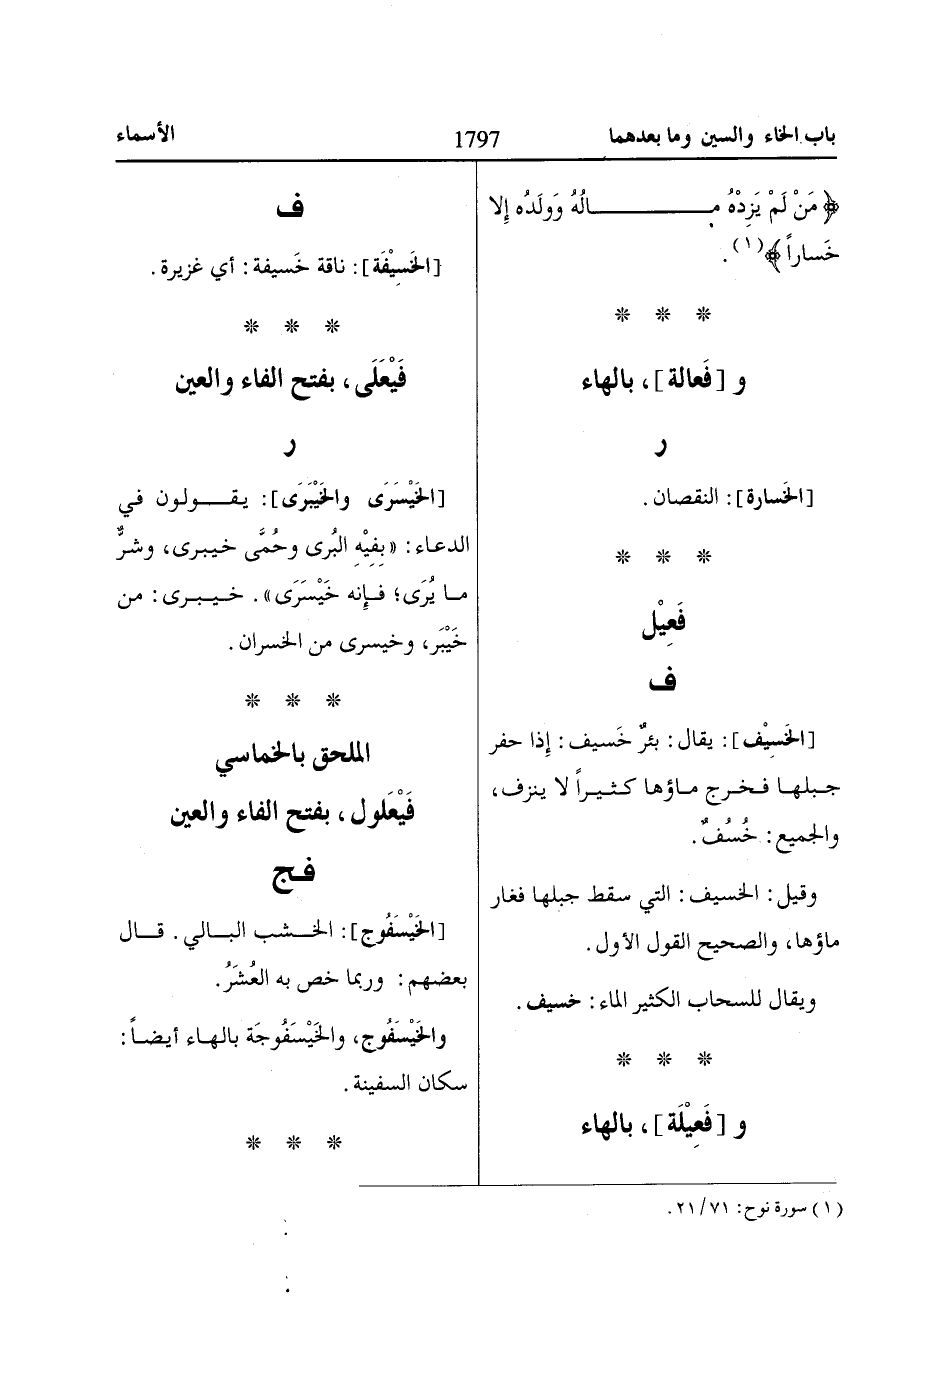 باب الخاء والسين وما بعدهما
1797
الأسماء
﴿ مَنْ لَمْ يَزِدْهُ مـالُهُ وَوَلَدُه إِلا
خَساراً ﴾(١).
* * *
و [فَعالة]، بالهاء
ر
[الخَسارة]: النقصان.
* * *
فَعِيْل
ف
[الخَسِيْف]: يقال: بئرٌ خَسيف: إِذا حفر
جبلها فخرج ماؤها كثيراً لا ينزف،
والجميع: خُسُفٌ.
وقيل: الخسيف: التي سقط جبلها فغار
ماؤها، والصحيح القول الأول.
ويقال للسحاب الكثير الماء: خسيف.
* * *
و [فَعِيْلَة]، بالهاء
ف
[الخَسِيْفَة]: ناقة خَسيفة: أي غزيرة.
* * *
فَيْعَلَى، بفتح الفاء والعين
ر
[الخَيْسَرَى والخَيْبَرَى]: يقولون في
الدعاء: «بِفِيْهِ البُرى وحُمَّى خيبرى، وشرٌّ
ما يُرَى؛ فإِنه خَيْسَرَى». خيبرى: من
خَيْبَر، وخيسرى من الخسران.
* * *
الملحق بالخماسي
فَيْعَلول، بفتح الفاء والعين
فج
[الخَيْسَفُوج]: الخشب البالي. قال
بعضهم: وربما خص به العُشَرُ.
والخَيْسَفُوج، والخَيْسَفُوجَة بالهاء أيضاً:
سكان السفينة.
* * *
(١) سورة نوح: ٢١/٧١.